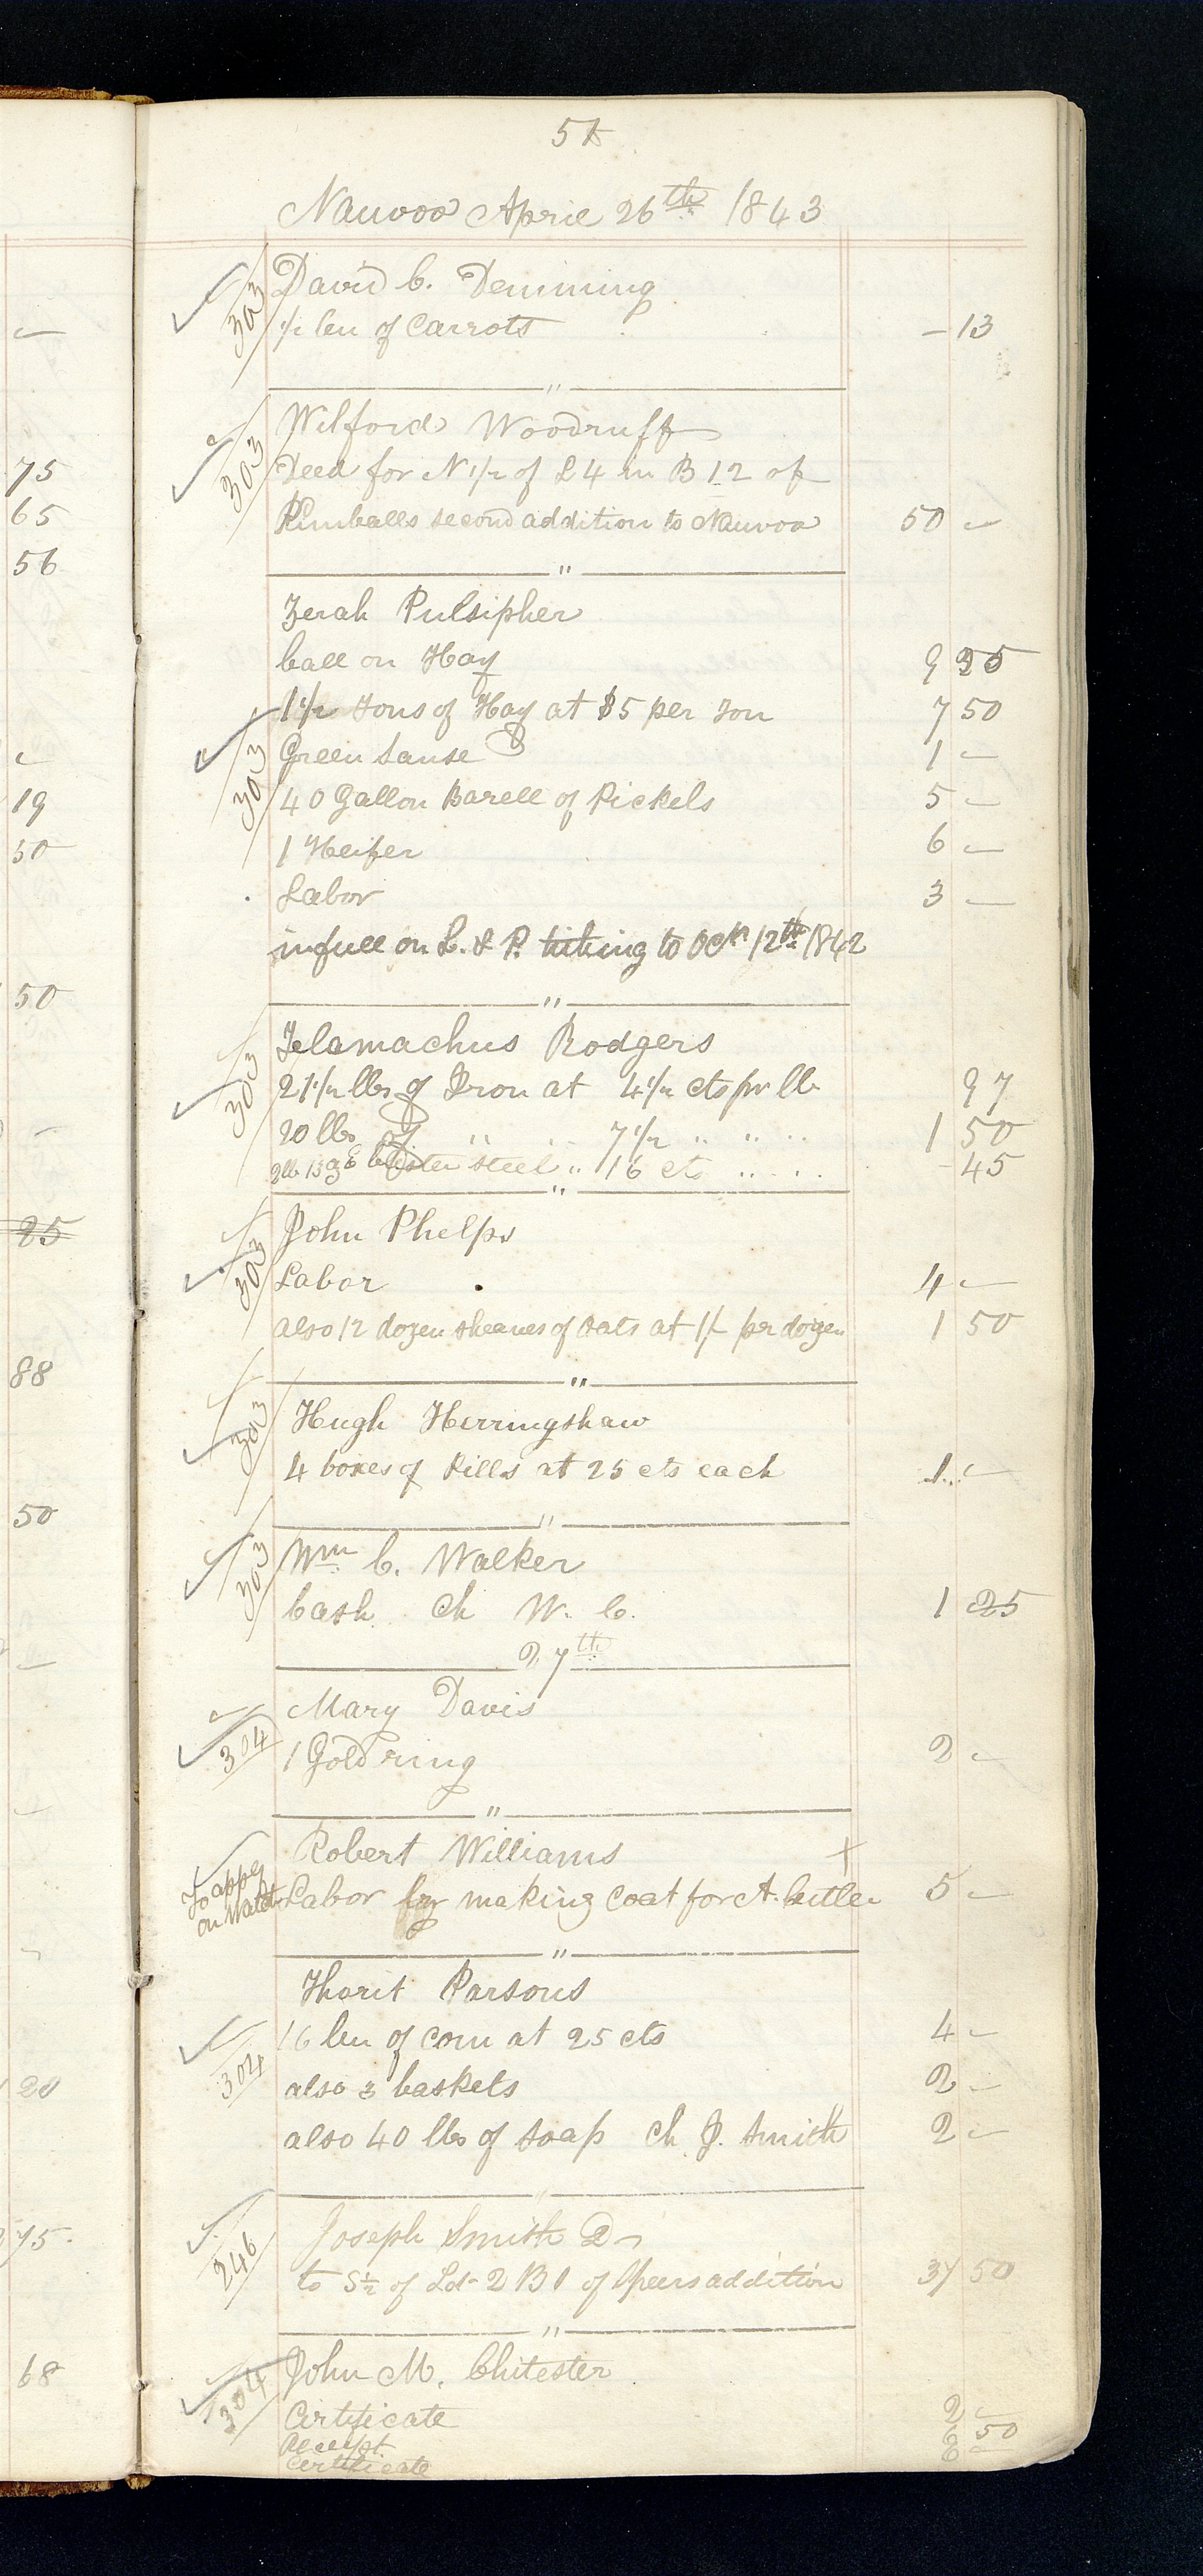 51
Nauvoo April 26th 1843
303 David C. Demming
1/2 bu of Carrots - 13
"
303 Wilford Woodruff
Deed for N 1/2 of L 4 in B 12 of
Kimballs second addition to Nauvoo 50 -
"
Zerah Pulsipher
ball on Hay 9
1 1/2 Tons of Hay at $5 per Ton 7 50
303 Green Sause 1 -
40 Gallon Barell of Pickels 5 -
1 Heifer 6 -
Labor 3 -
in full on L. & P. tithing to Octr 12th 1842
"
303 Telamachus Rodgers
21 1/2 lbs of Iron at 4 1/2 cts pr lb 97
20 lbs of " " 7 1/2 " " " 1 50
blister steel " 16 cts " " " - 45
"
303 John Phelps
Labor 4 -
also 12 dozen sheaves of oats at 1/- per dozen 1 50
"
303 Hugh Herringshaw
4 boxes of Pills at 25 cts each 1 -
"
303 Wm C. Walker
Cash Ch W. C. 1 25
27th
Mary Davis
304 1 Gold ring 2 -
"
Robert Williams +
To apply on Watch Labor by making Coat for A. Cutler 5 -
"
Tharit Parsons
16 bu of corn at 25 cts 4 -
304 also 3 baskets 2 -
also 40 lbs of soap Ch J. Smith 2 -
"
Joseph Smith Dr
246 to S 1/2 of Lot 2 B 1 of Spears addition 37 50
"
304 John M. Chitester
Certificate 2 -
Receipt 6 50
Certificate 6 -
75
65
56
19
50
50
25
88
50
20
75
68